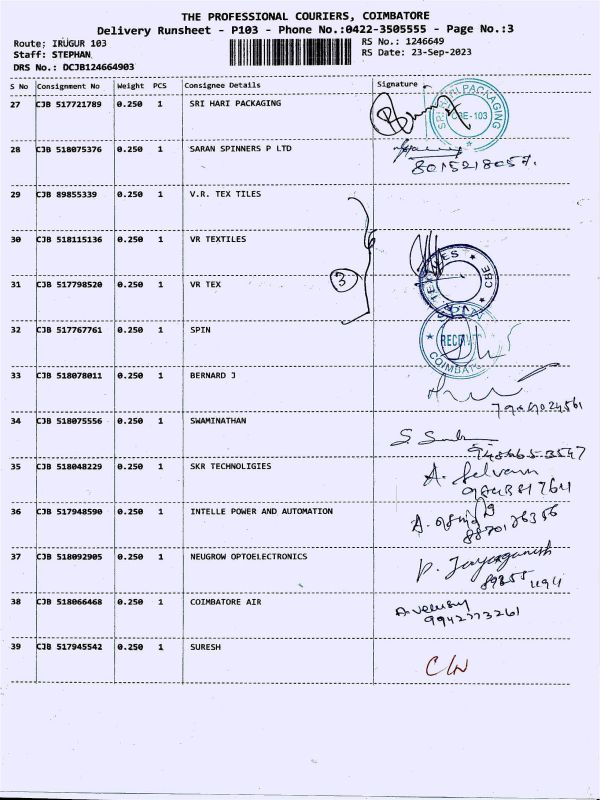 THE PROFESSIONAL COURIERS, COIMBATORE
Delivery Runsheet - P103 - Phone No.:0422-3505555 - Page No.:3
Route; IRUGUR 103
Staff: STEPHAN
DRS No.: DCJB124664903
RS No.: 1246649
RS Date: 23-Sep-2023
S No Consignment No Weight PCS Consignee Details Signature
27 CJB 517721789 0.250 1 SRI HARI PACKAGING
SRI HARI PACKAGING CBE-103
28 CJB 518075376 0.250 1 SARAN SPINNERS P LTD
8015218057.
29 CJB 89855339 0.250 1 V.R. TEX TILES
30 CJB 518115136 0.250 1 VR TEXTILES
3
CBE
31 CJB 517798520 0.250 1 VR TEX
32 CJB 517767761 0.250 1 SPIN
33 CJB 518078011 0.250 1 BERNARD J
34 CJB 518075556 0.250 1 SWAMINATHAN
35 CJB 518048229 0.250 1 SKR TECHNOLIGIES
A. Selvam
36 CJB 517948590 0.250 1 INTELLE POWER AND AUTOMATION
8870126356
37 CJB 518092905 0.250 1 NEUGROW OPTOELECTRONICS
38 CJB 518066468 0.250 1 COIMBATORE AIR
9942773261
39 CJB 517945542 0.250 1 SURESH